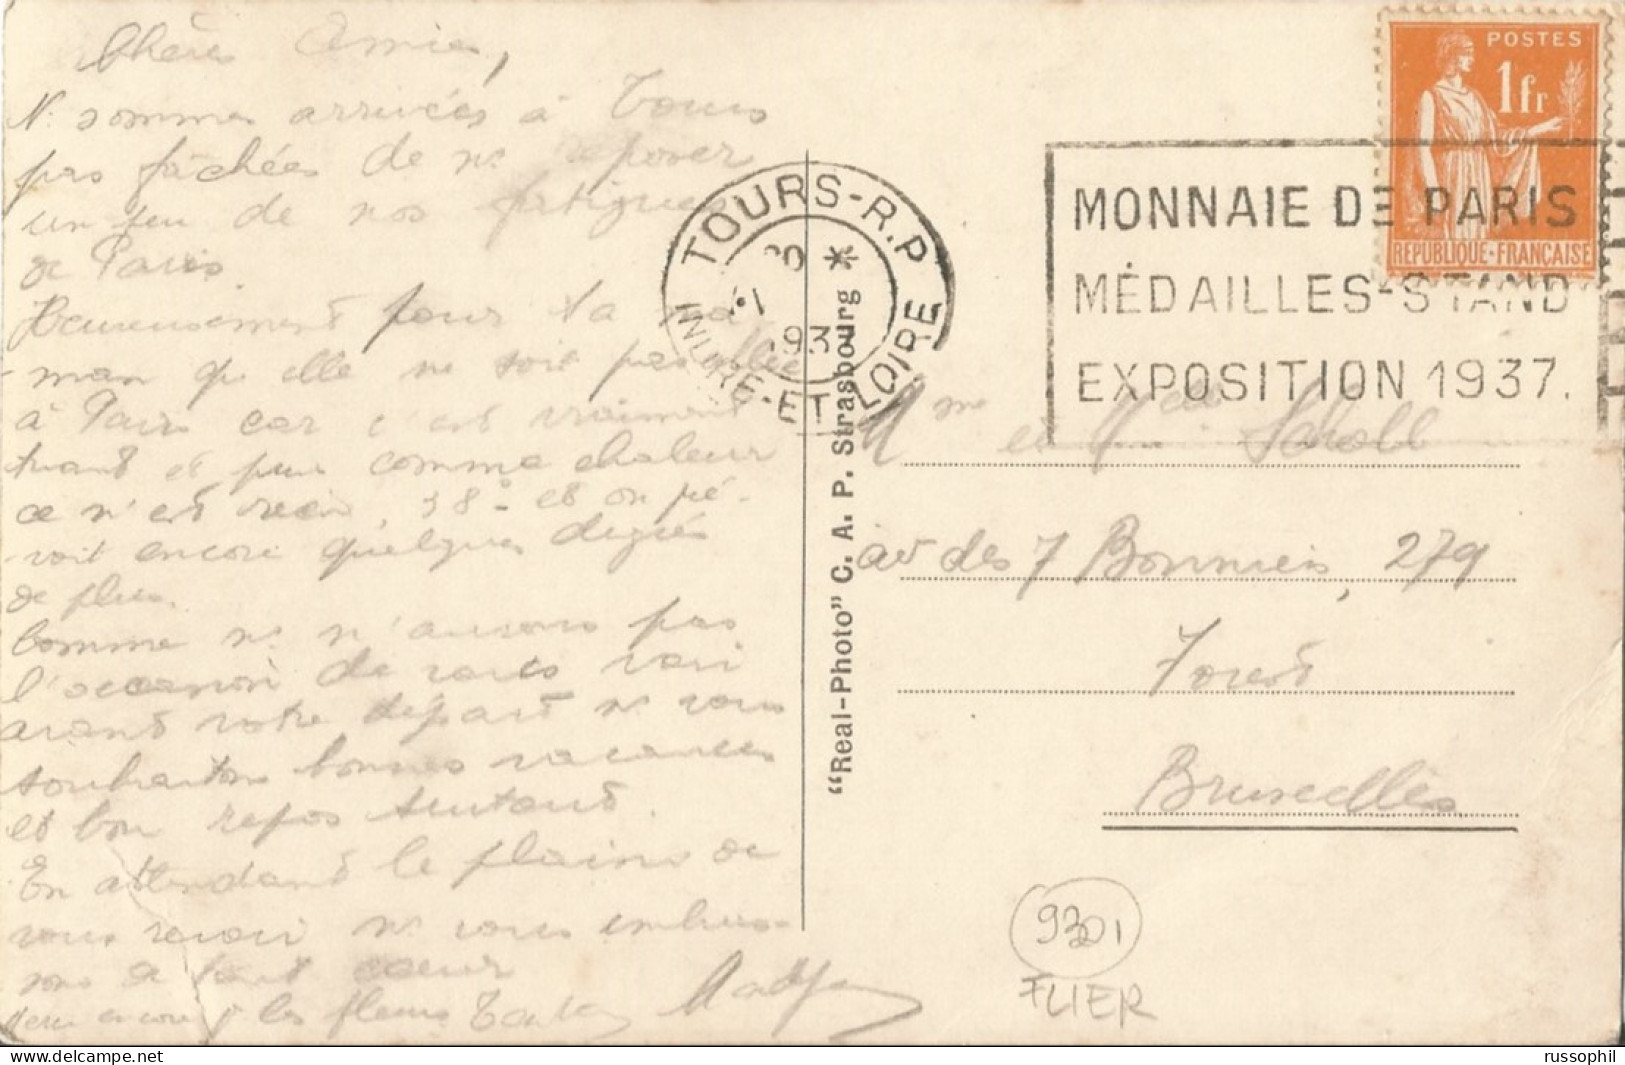 Chères Amies,
Ns sommes arrivées à Tours
pas fâchées de ns reposer
un peu de nos fatigues
de Paris.
Heureusement pour ta ma-
man qu'elle ne soit pas allée
à Paris car c'est vraiment
et puis comme chaleur
ce n'est rien, 38° et on pré-
voit encore quelques degrés
de plus.
Comme ns n'aurons pas
l'occasion de vous voir
avant votre départ ns vous
souhaitons bonnes vacances
et bon repos surtout.
En attendant le plaisir de
vous revoir ns vous embras-
sons de tout cœur
encore les fleurs
TOURS-R.P.
INDRE-ET-LOIRE
MONNAIE DE PARIS
MÉDAILLES-STAND
EXPOSITION 1937.
POSTES
1fr
REPUBLIQUE-FRANÇAISE
"Real-Photo" C. A. P. Strasbourg
Mme et Melle Scholl
av des 7 Bonniers, 279
Forest
Bruxelles
9301
FLIER
russophil